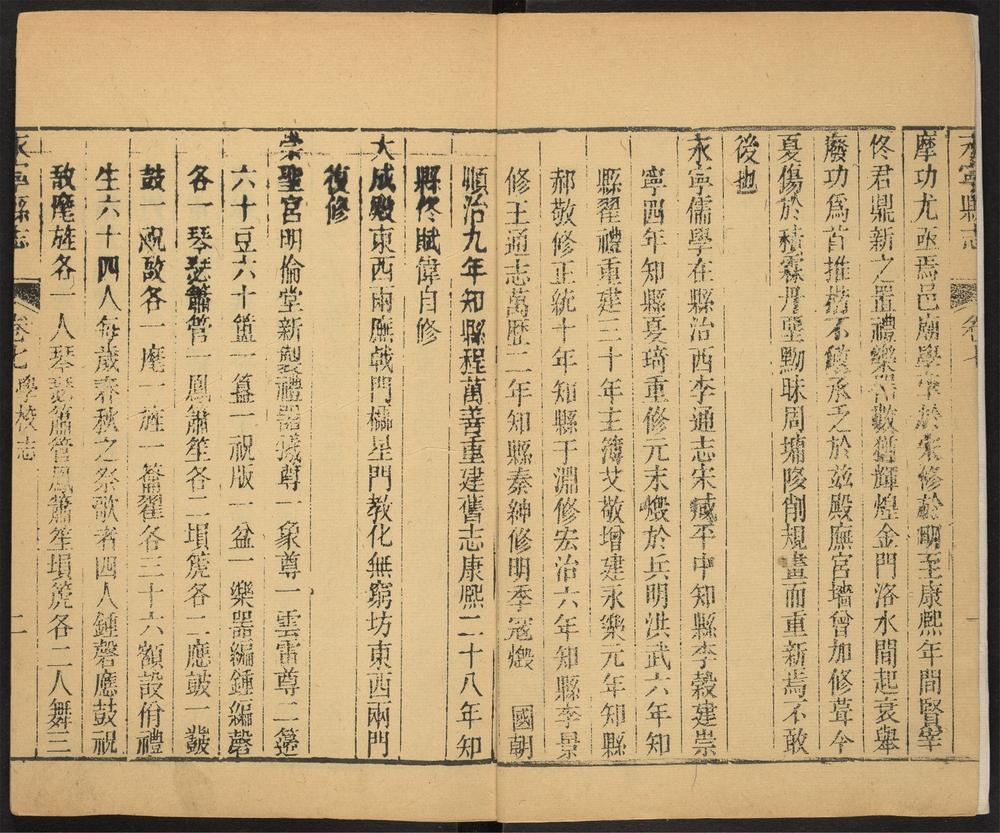 永寧縣志
卷七
摩功尤亟焉邑廟學宰於宋修於明至康熙年間賢宰
佟君鼎新之置禮樂器數猶輝煌金門洛水間起衰舉
廢功爲首推楷不敏承乏於兹殿廡宮墻曾加修葺今
夏傷於積霖丹堊黝昧周墉陊削規畫而重新焉不敢
後也
永寧儒學在縣治西李通志宋咸平中知縣李榖建崇
寧四年知縣夏琦重修元末燬於兵明洪武六年知
縣翟禮重建三十年主簿艾敬增建永樂元年知縣
郝敬修正統十年知縣于淵修宏治六年知縣李景
修王通志萬歷二年知縣秦紳修明季寇燬 國朝
順治九年知縣程萬善重建舊志康熙二十八年知
縣佟賦偉自修
大成殿東西兩廡戟門櫺星門教化無窮坊東西兩門
復修
崇聖宮明倫堂新製禮器犧尊一象尊一雲雷尊二籩
六十豆六十簠一簋一祝版一盆一樂器編鍾編磬
各一琴瑟簫管一鳳簫笙各二塤箎各二應鼓一鼗
鼓一柷敔各一麾一旌一籥翟各三十六額設佾禮
生六十四人每歲春秋之祭歌者四人鍾磬應鼓柷
敔麾旌各一人琴瑟簫管鳳簫笙塤箎各二人舞三
永寧縣志
卷七 學校志
二